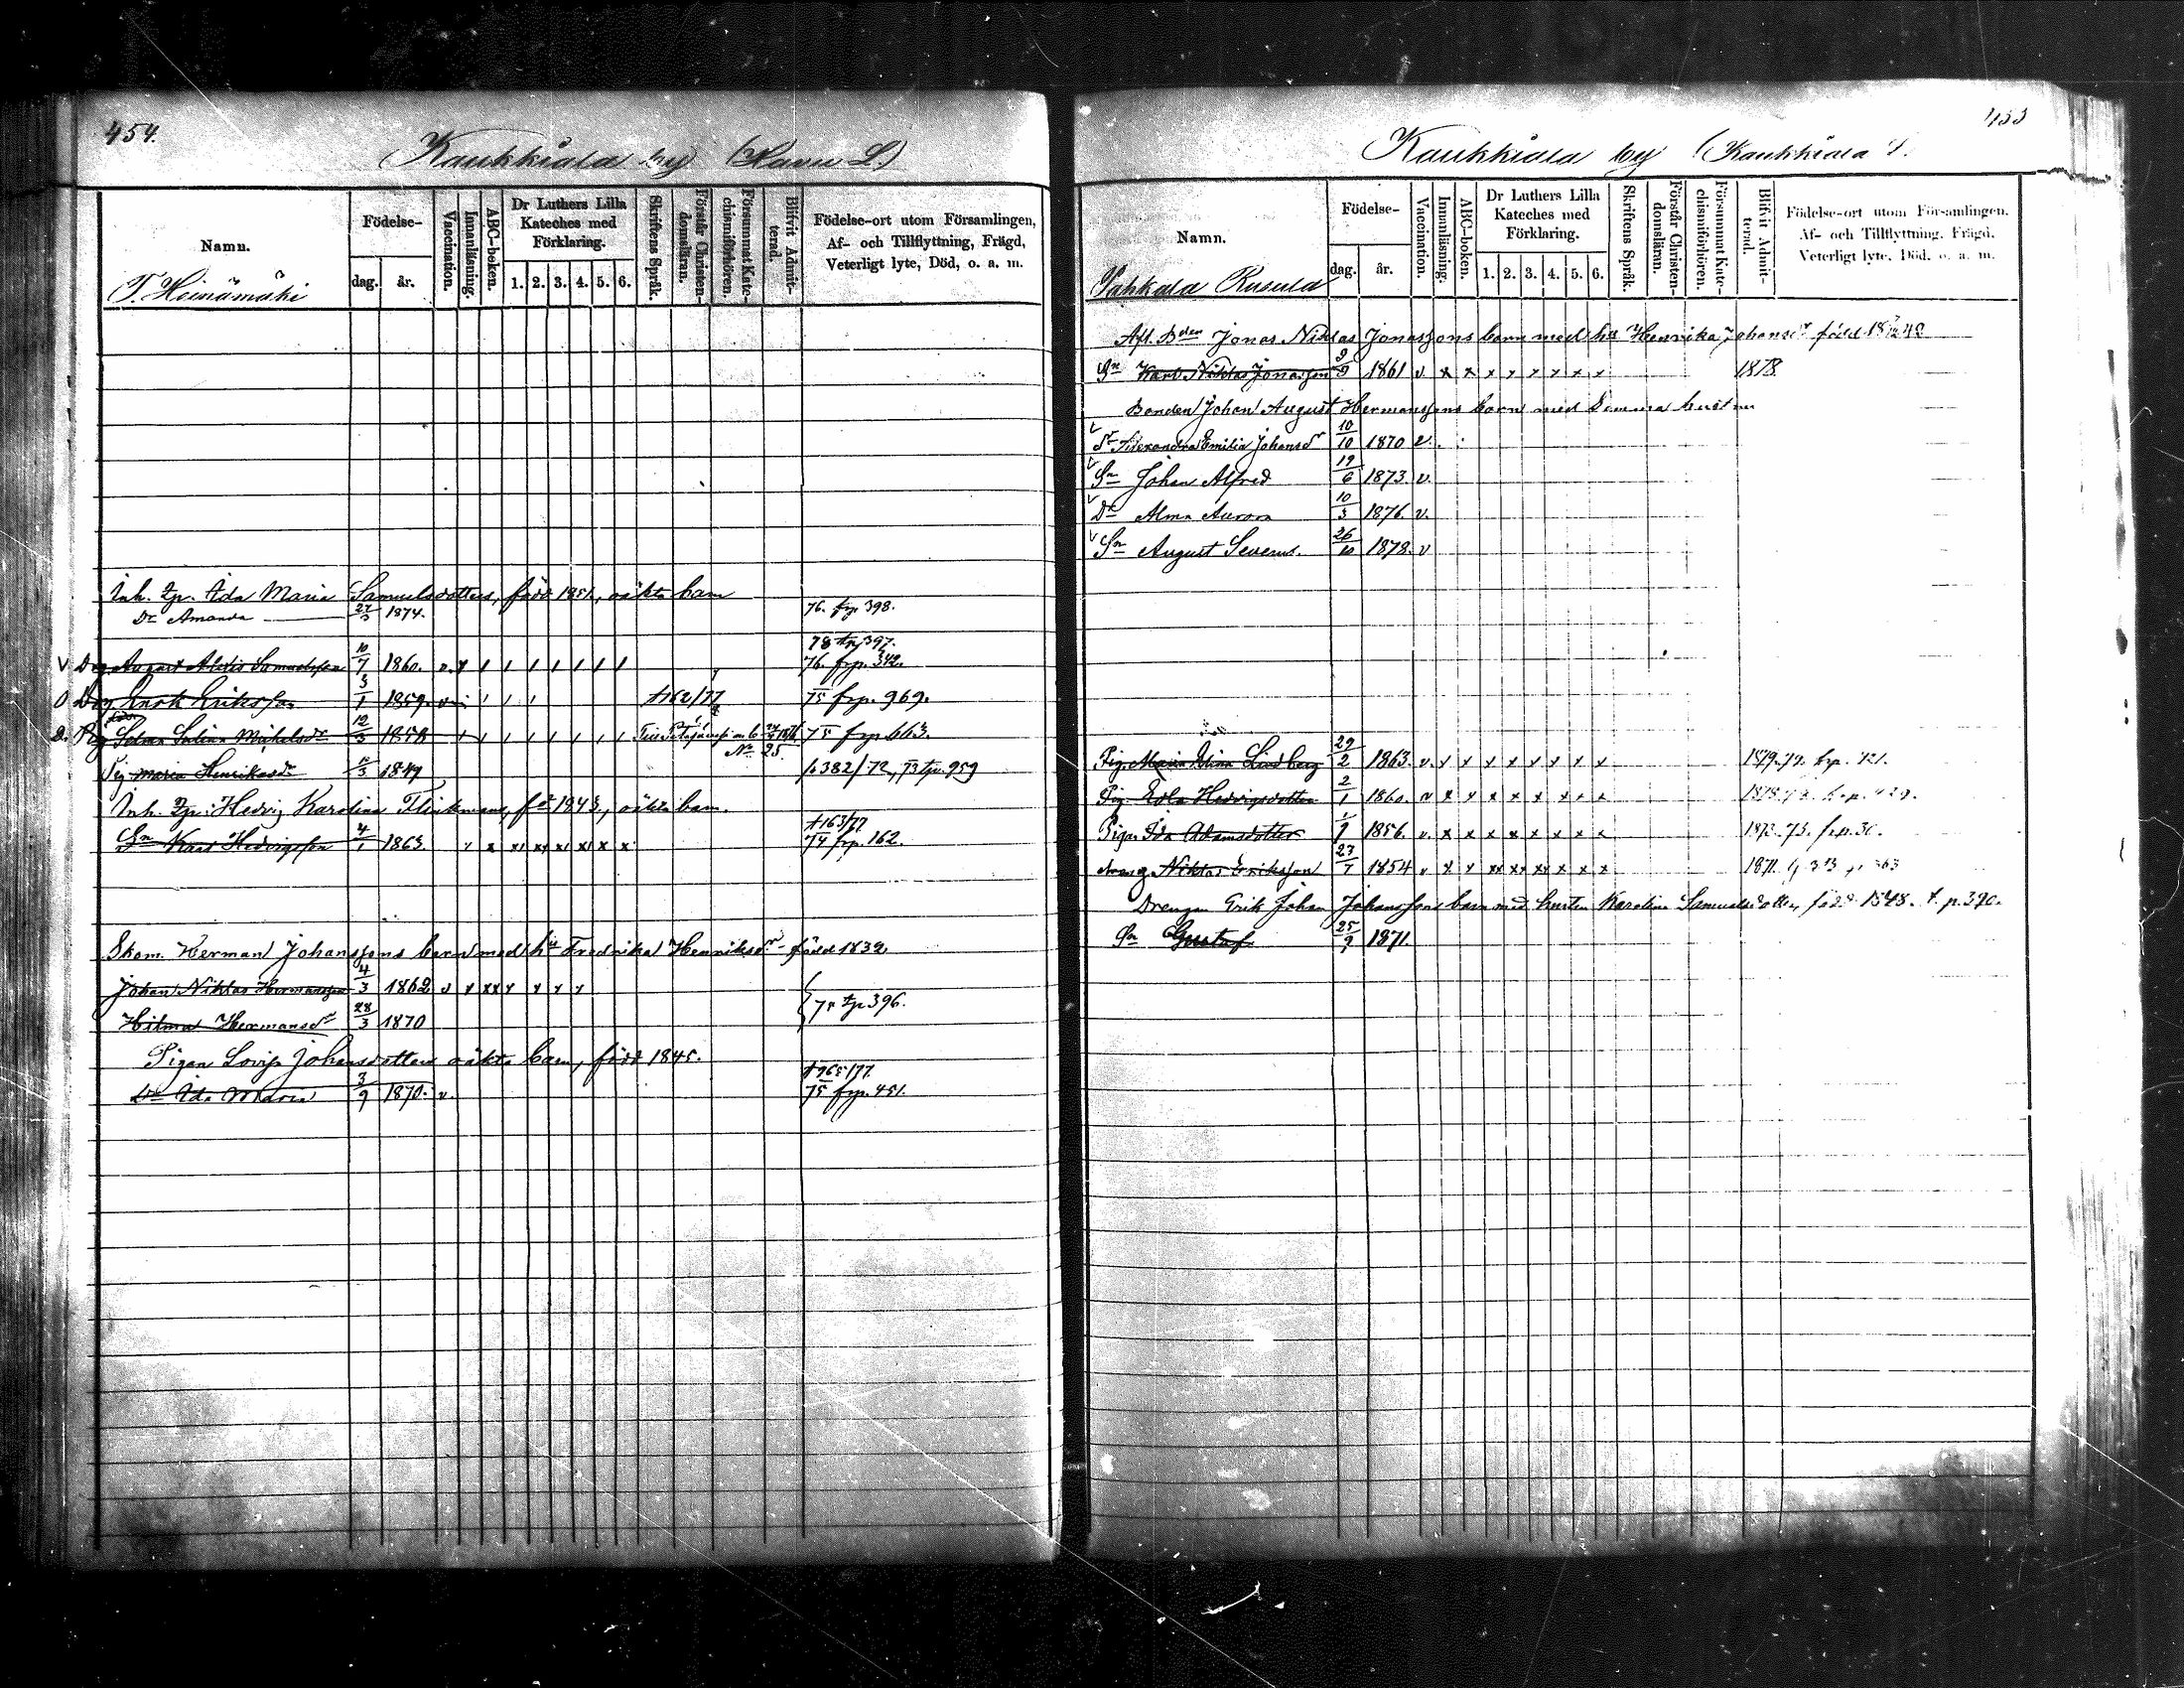 454.
Kaukkiala by (Kavu L.)
Namn.
Födelse-
dag.
år.
Vaccination.
Innanläsning.
ABC-boken.
Dr Luthers Lilla
Kateches med
Förklaring.
1. 2. 3. 4. 5. 6.
Skriftens Språk.
Förstår Christen-
domsläran.
Försummat Kate-
chismiförhören.
Blifvit Admit-
terad.
Födelse-ort utom Församlingen,
Af- och Tillflyttning, Frägd,
Veterligt lyte, Död, o. a. m.
T. Heinämäki
Inh. Ida Maria Samuelsdotters, född 1851, oäkta barn
Dr Amanda 27/3 1874. 76. frp. 398.
78 tp 397.
V Drg August Alexis Samuelsson 10/7 1860. v. 76. frp. 342.
O Drg Erik Eriksson 3/1 1859. †162/77 75 frp. 969.
Pig Selma Sulina Mickelsdr 12/3 1858 75 frp 663.
No 25.
Pig Maria Henriksdr 1849 382/72, 73 tp. 959
Inh. Hedvig Karolina Flinkmans, fd 1843, oäkta barn.
†163/77
Sn Karl Hedvigsson 4/1 1863. 74 frp. 162.
Skom. Herman Johanssons barn med hu Fredrika Henriksdr född 1832
Johan Niklas Hermansson 4/3 1862 v
75 tp 396.
Hilma Hermansdr 28/3 1870
Pigan Lovisa Johansdotters oäkta barn, född 1845.
†965/77
Dr Ida Maria 3/9 1870. v. 75 frp. 451.
453
Kaukkiala by (Kaukkiala
Namn.
Födelse-
dag.
år.
Vaccination.
Innanläsning.
ABC-boken.
Dr Luthers Lilla
Kateches med
Förklaring.
1. 2. 3. 4. 5. 6.
Skriftens Språk.
Förstår Christen-
domsläran.
Försummat Kate-
chismiförhören.
Blifvit Admit-
terad.
Födelse-ort utom Församlingen.
Af- och Tillflyttning. Frägd.
Veterligt lyte. Död. o. a. m.
Sakkala Rusula
Afl. Bden Jonas Niklas Jonassons barn med hu Henrika Johansdr född
Sn Karl Niklas Jonasson 9/9 1861 v x x x x x x x x 1878.
Bonden Johan August Hermanssons barn med samma hustru
Dr Alexandra Emilia Johansdr 10/10 1870 v.
Sn Johan Alfred 19/6 1873. v.
Dr Alma Aurora 10/3 1876. v.
Sn August Severus. 26/10 1878. v
Pig. Maria Elina Lindberg 29/2 1863. v. x x x x x x x x 1879. 79. frp. 721.
Pig Eola Hedvigsdotter 2/1 1860. v x x x x x x x x
Pigan Ida Adamsdotter 1856. v. x x x x x x x x 1873. 75. frp. 30.
Dreng Niklas Eriksson 23/7 1854 v x x xx xx xx x x x 1871.
Drengen Erik Johan Johanssons barn med hustru Karolina Samuelsdotter, född 1848. t. p. 390.
Sn Gustaf 25/9 1871.